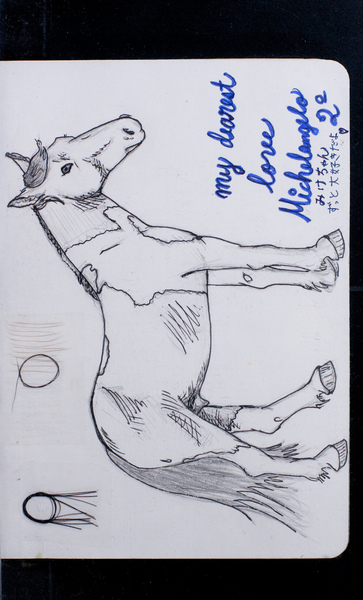 my dearest
love
Michelangelo
2º
みけちゃん
ずっと大好きだよ